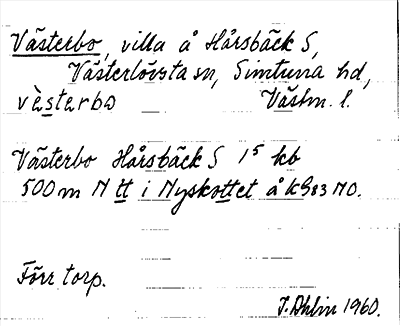 Västerbo, villa å Hårsbäck S,
Västerlövsta sn, Simtuna hd,
vèsterbo Västm. l.
Västerbo Hårsbäck S 1⁵ kb
500 m N tt i Nyskottet å k 983 NO.
Förr torp.
I. Ahlin 1960.